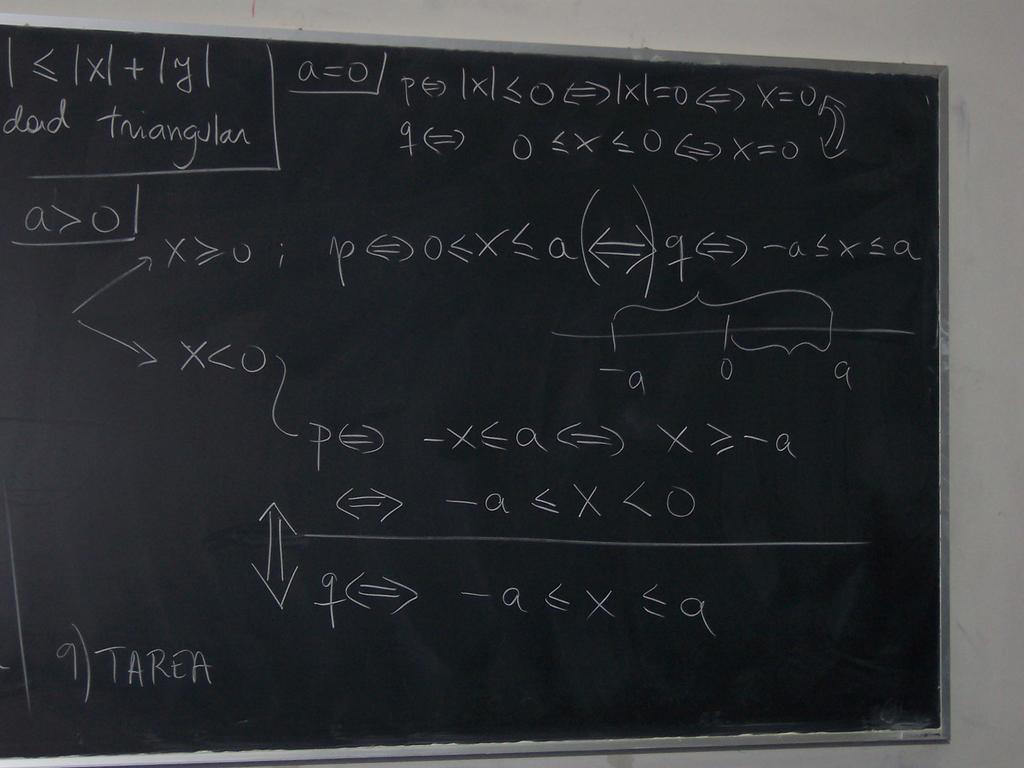 | ≤ |x| + |y|
dad triangular
a=0
p⇔ |x| ≤ 0 ⇔ |x| = 0 ⇔ x = 0
q⇔ 0 ≤ x ≤ 0 ⇔ x = 0
a>0
x ≥ 0 ; p⇔ 0 ≤ x ≤ a (⇔) q⇔ -a ≤ x ≤ a
-a 0 a
x < 0
p⇔ -x ≤ a ⇔ x ≥ -a
⇔ -a ≤ x < 0
q⇔ -a ≤ x ≤ a
9) TAREA